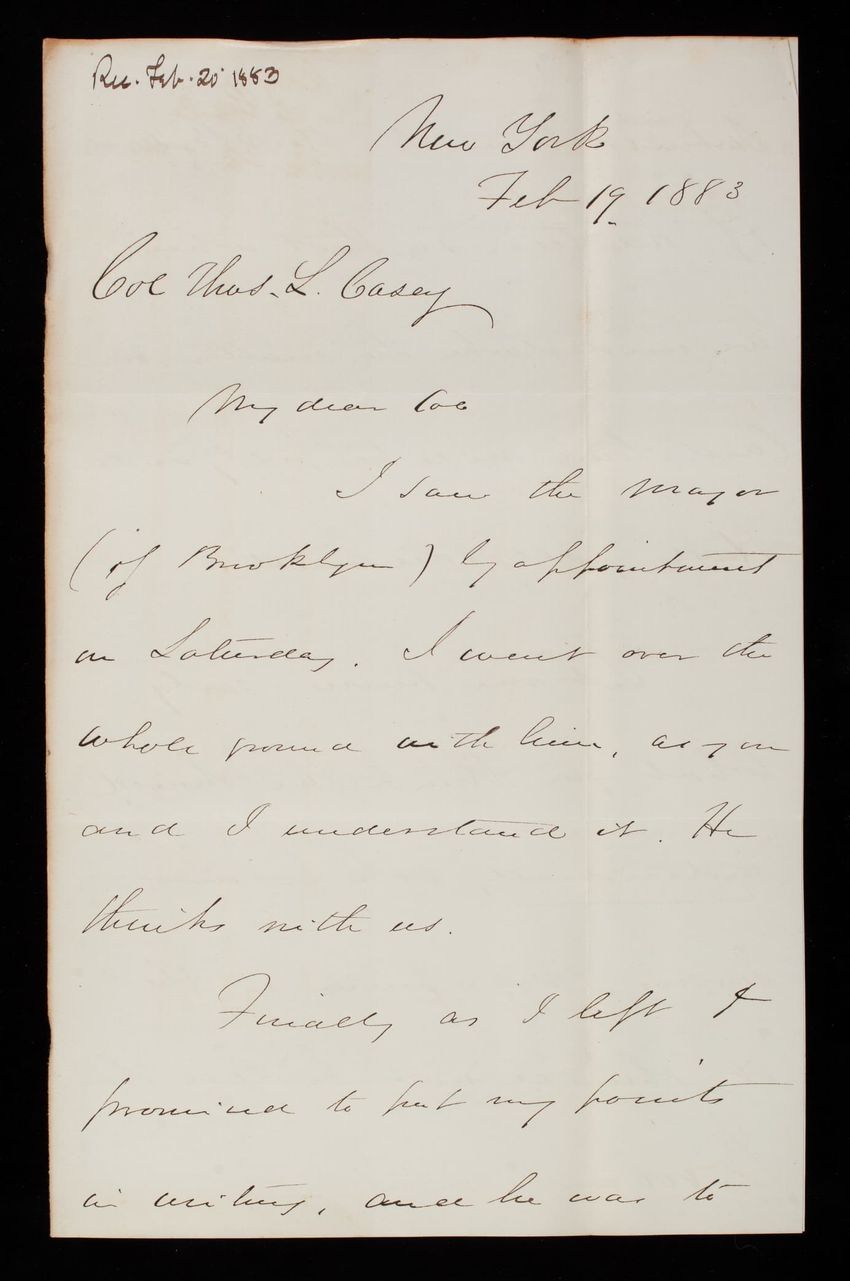 Rec. Feb. 20 1883
New York
Feb 19 1883
Col Thos. L. Casey
My dear Col
I saw the Mayor
(of Brooklyn) by appointment
on Saturday. I went over the
whole ground with him, as you
and I understand it. He
thinks with us.
Finally as I left I
promised to put my points
in writing, and he was to